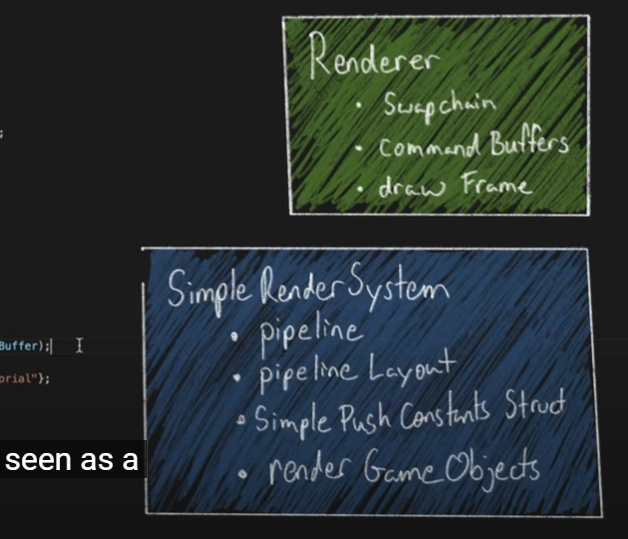 Renderer
• Swapchain
• command Buffers
• draw Frame
;
Simple Render System
• pipeline
• pipeline Layout
• Simple Push Constants Struct
• render Game Objects
Buffer);
orial"};
seen as a